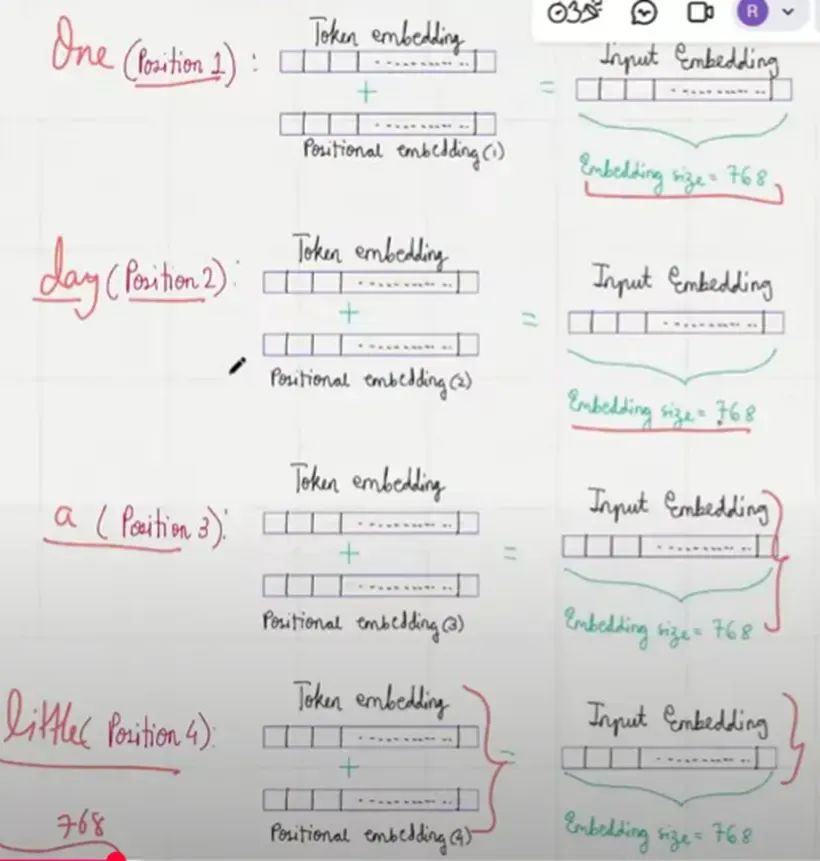 One (Position 1) :
Token embedding
+
Positional embedding (1)
=
Input Embedding
Embedding size = 768
day (Position 2) :
Token embedding
+
Positional embedding (2)
=
Input Embedding
Embedding size = 768
a ( Position 3) :
Token embedding
+
Positional embedding (3)
=
Input Embedding
Embedding size = 768
little ( Position 4) :
Token embedding
+
Positional embedding (4)
=
Input Embedding
Embedding size = 768
768
R